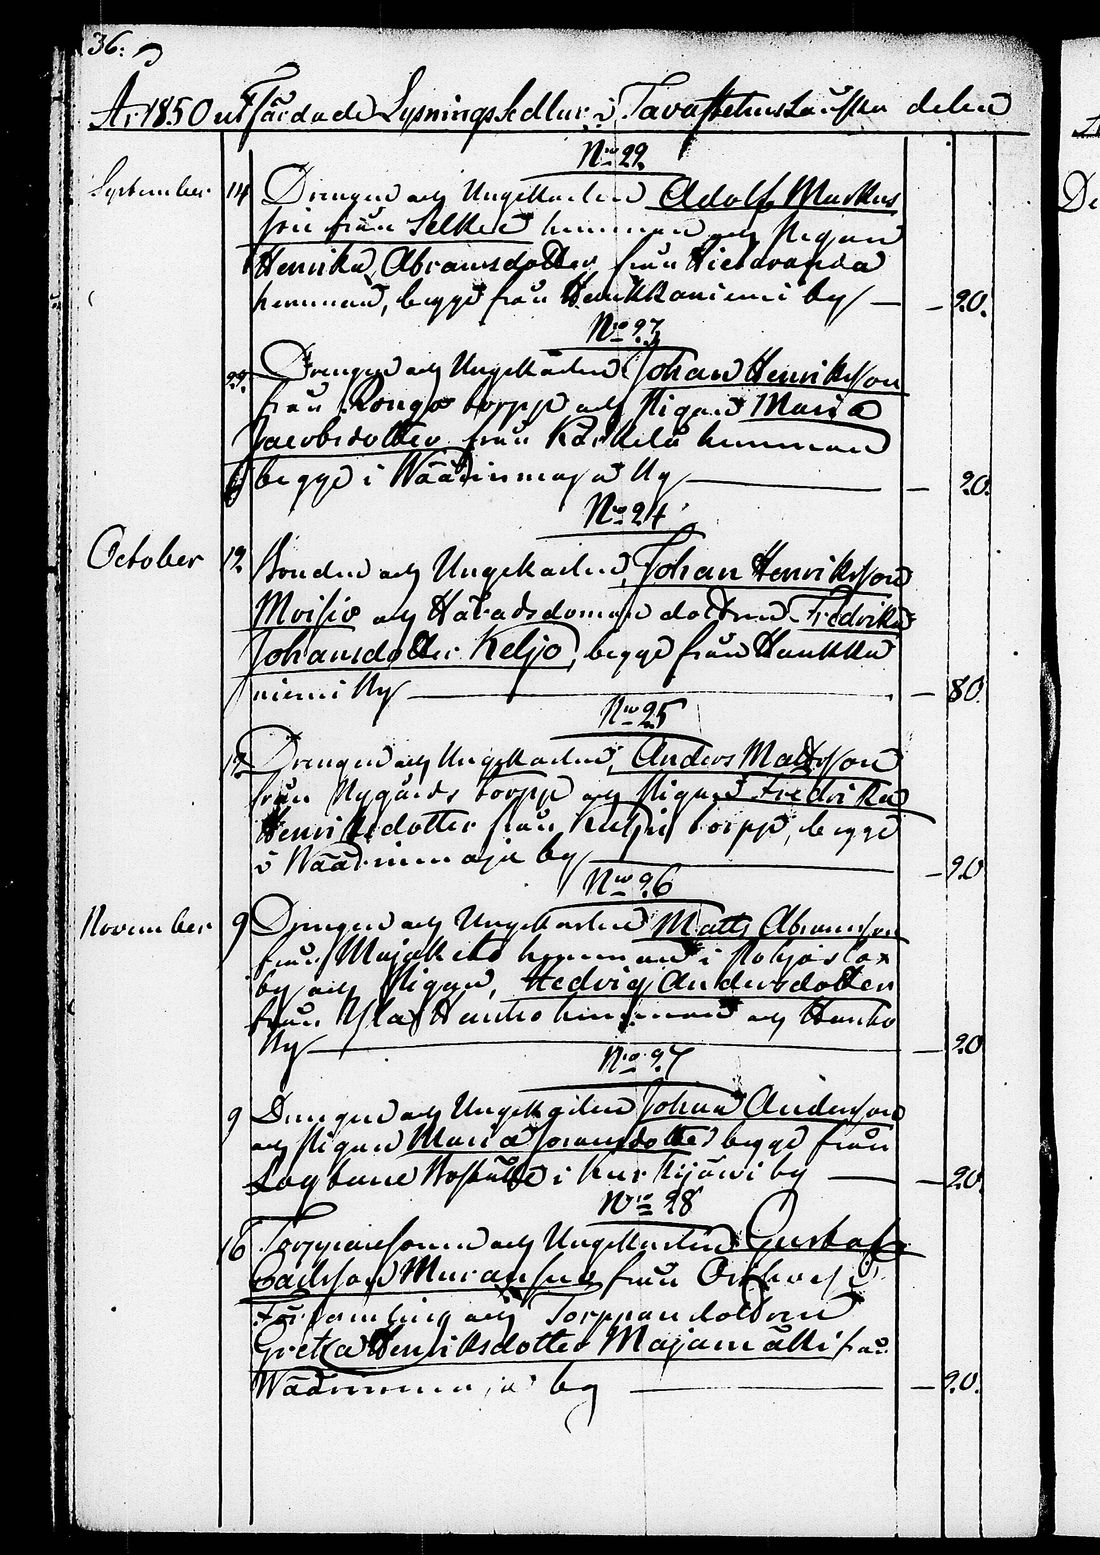 36.
År 1850 utfärdade Lysnings Sedlar, i Tavastehus Länska delen
No 22
September 14 Drängen och Ungkarlen Adolf Markus
son från Selkee hemman och Pigan
Henrika Abramsdotter från
hemman, begge från Haukkaniemi by — 20.
No 23
22. Drängen och Ungkarlen Johan Henriksson
från Rongo torpp och Pigan Maria
Jacobsdotter från Kärkelä hemman
begge i Wäärinmaja by — 20.
No 24
October 12 Bonden och Ungkarlen Johan Henriksson
Moisio och Häradsdomare dottren Fredrika
Johansdotter Keljo, begge från Haukka
niemi by — 80.
No 25
12 Drängen och Ungkarlen Anders Mattsson
från Nygårds torpp och Pigan Fredrika
Henriksdotter från torpp, begge
i Wäärinmaja by — 20
No 26
November 9 Drängen och Ungkarlen Matts Abramsson
från hemman i Pohjaslax
by och Pigan, Hedvig Andersdotter
från Yla Hanho hemman och Hanho
by — 20
No 27
9 Drängen och Ungkarlen Johan Andersson
och Pigan Maria Joransdotter begge från
Boställe i Kurkijärvi by — 20.
No 28
16 Torpparesonen och Ungkarlen Gustaf
Carlsson Muranen från Orihvesi
Församling och Torppan dottren
Greta Henriksdotter Majamäki från
Wäärinmaja by — 20.